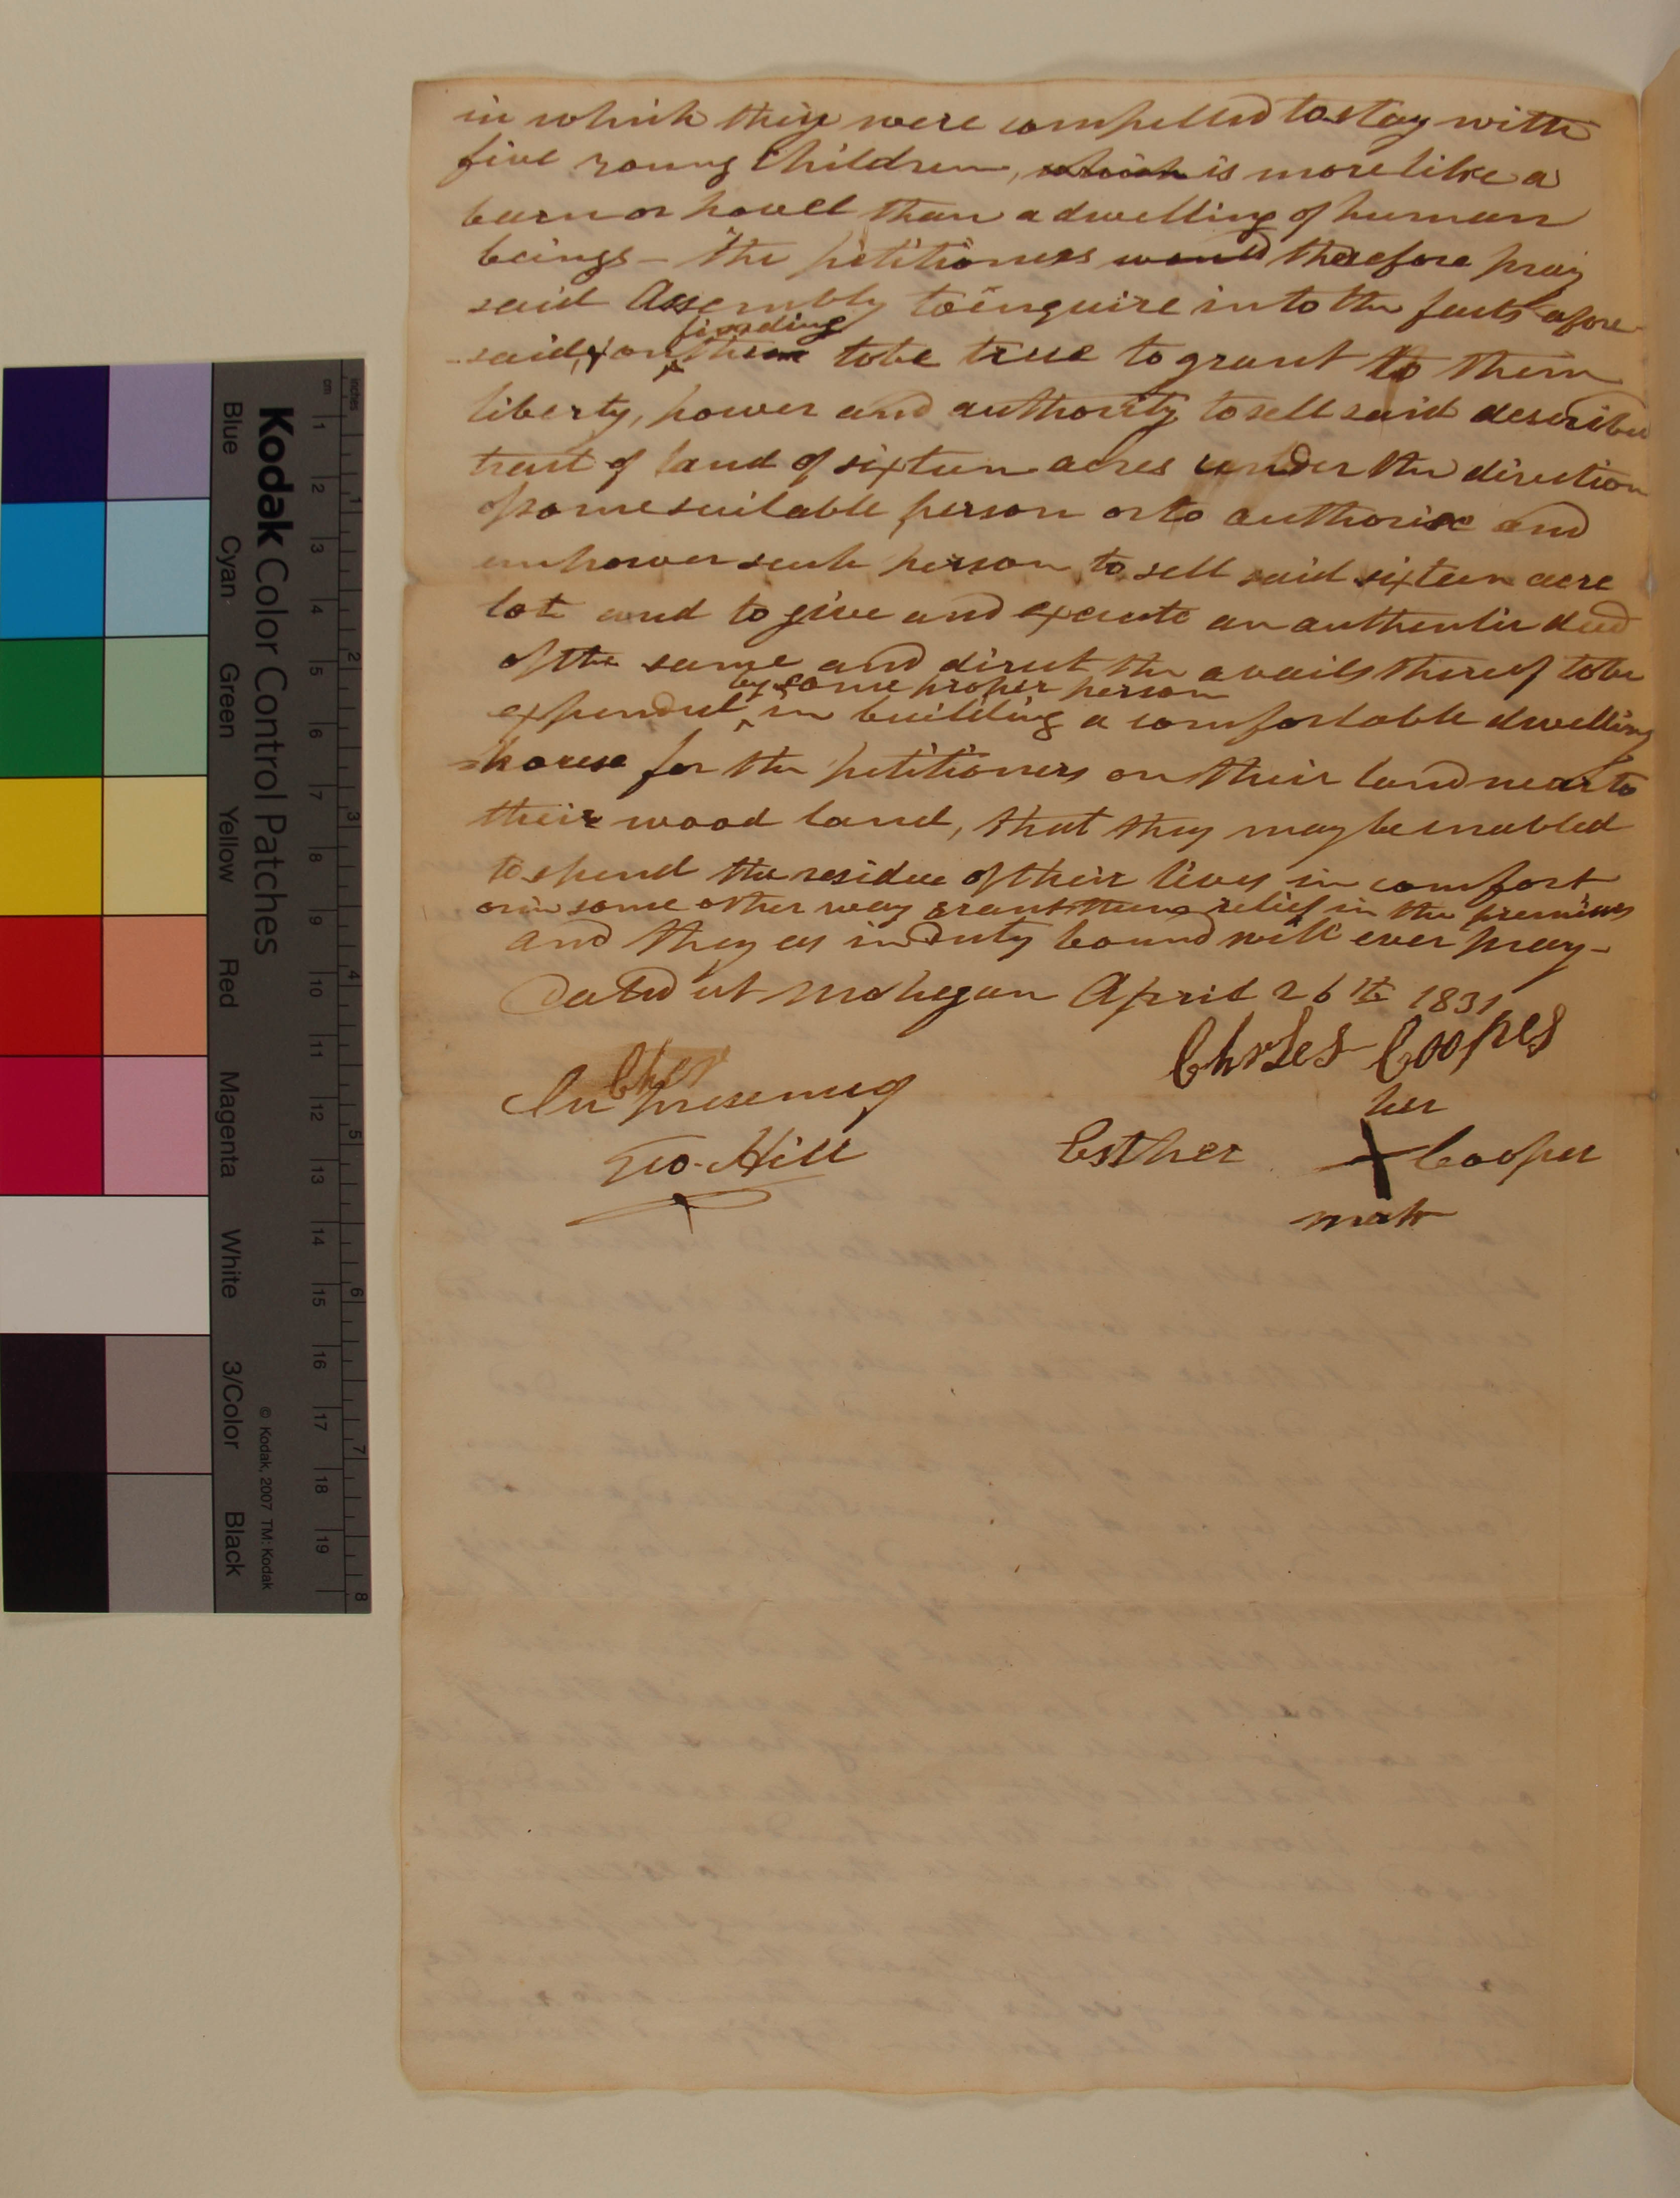 in which they were compelled to stay with
five young Children, which is more like a
barn or hovel than a dwelling of human
beings - The petitioners would therefore pray
said Assembly to enquire into the facts afore
finding
said, & on them to be true to grant to them
liberty, power and authority to sell said described
tract of land of sixteen acres under the direction
of some suitable person or to authorise and
empower such person to sell said sixteen acre
lot and to give and execute an authentic deed
of the same and direct the avails thereof to be
by some proper person
expended in building a comfortable dwelling
house for the petitioners on their land near to
their wood land, that they may be enabled
to spend the residue of their lives in comfort
or in some other way grant them relief in the premises
and they as in duty bound will ever pray-
Dated at Mohegan April 26th 1831
Chrles Coopes
Cher
In presence of
her
Geo. Hill
Esther X Cooper
mark
Kodak Color Control Patches
Blue Cyan Green Yellow Red Magenta White 3/Color Black
© Kodak, 2007 TM: Kodak
inches 1 2 3 4 5 6 7 8
cm 1 2 3 4 5 6 7 8 9 10 11 12 13 14 15 16 17 18 19